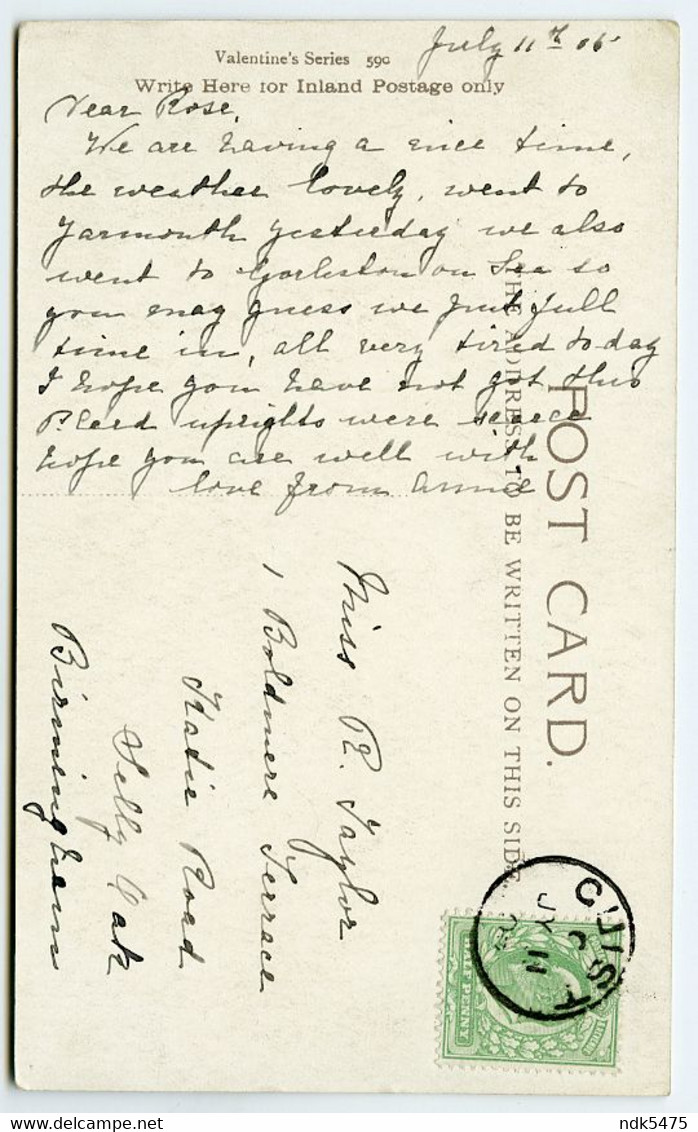 July 11th 06
Valentine's Series
Write Here for Inland Postage only
Dear Rose,
We are having a nice time,
the weather lovely, went to
Yarmouth yesterday we also
went to Gorleston on Sea so
you may guess we put full
time in, all very tired to-day
I hope you have not got this
P. Card uprights were scarce
hope you are well with
love from Annie
POST CARD.
THE ADDRESS TO BE WRITTEN ON THIS SIDE.
Miss R. Taylor
1 Boldmere Terrace
Katie Road
Selly Oak
Birmingham
JY 11
HALF PENNY
ndk5475